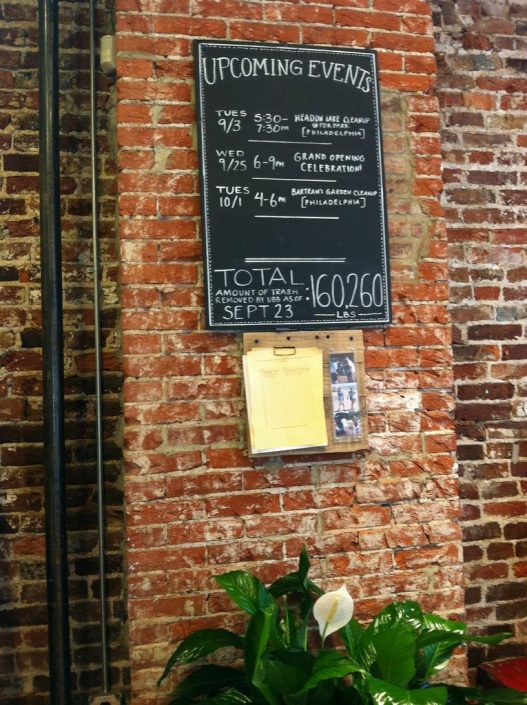 UPCOMING EVENTS
TUES 5:30- MEADOW LAKE CLEANUP
9/3 7:30PM @ FDR PARK
[PHILADELPHIA]
WED 6-9PM GRAND OPENING
9/25 CELEBRATION!
TUES 4-6PM BARTRAM'S GARDEN CLEANUP
10/1 [PHILADELPHIA]
TOTAL
AMOUNT OF TRASH
REMOVED BY UBB AS OF
SEPT 23
:160,260
LBS